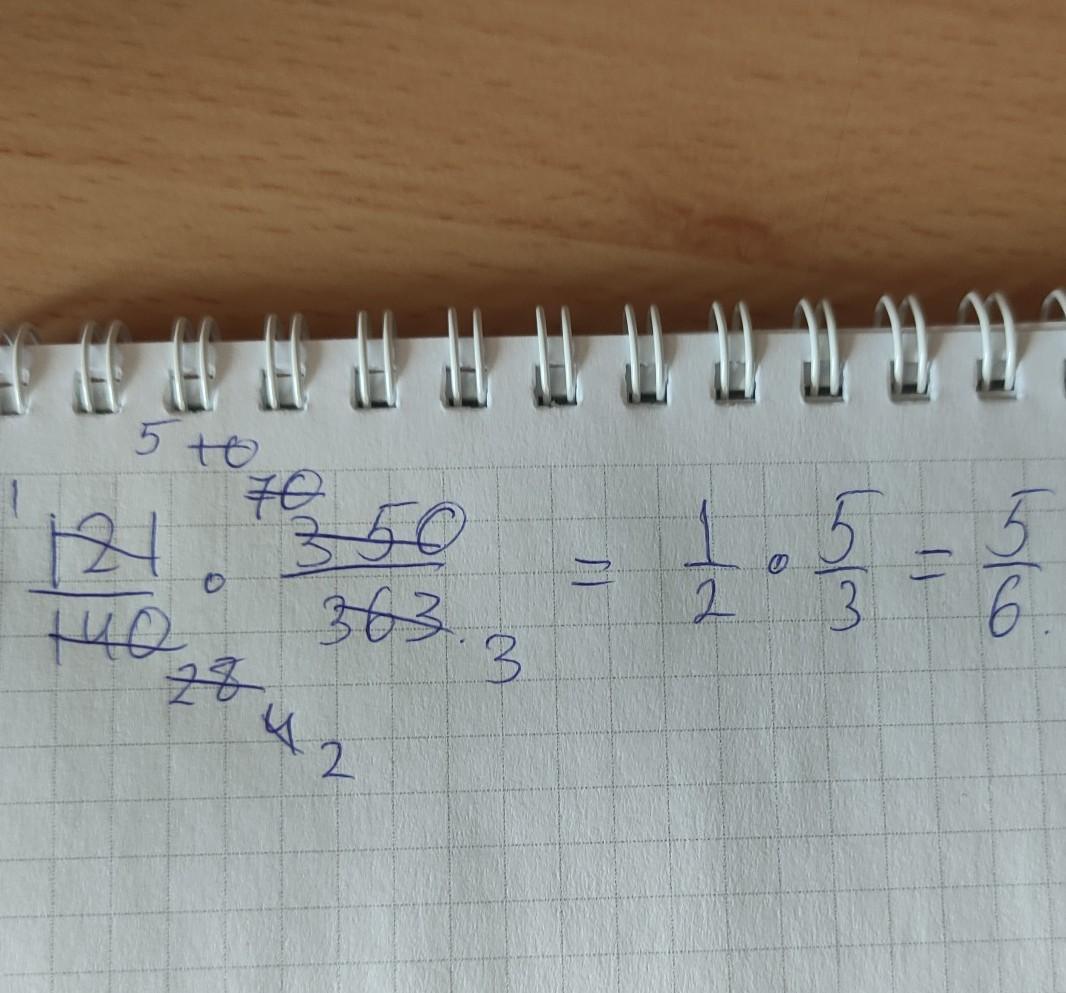 5 10
70
1 121/140 · 350/363 3 = 1/2 · 5/3 = 5/6.
28
4 2